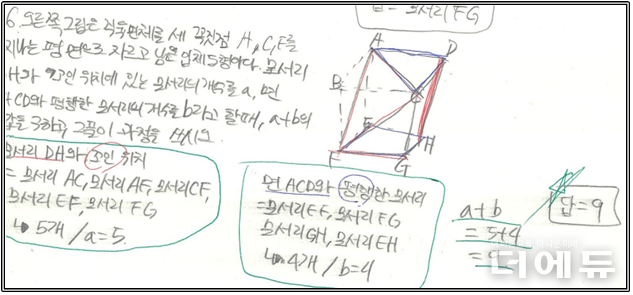 답 = 모서리 FG
6. 오른쪽 그림은 직육면체를 세 꼭짓점 A, C, F를
지나는 평면으로 자르고 남은 입체도형이다. 모서리
DH와 꼬인 위치에 있는 모서리의 개수를 a, 면
ACD와 평행한 모서리의 개수를 b라고 할 때, a+b의
값을 구하고 그 풀이 과정을 쓰시오
모서리 DH와 꼬인 위치
= 모서리 AC, 모서리 AF, 모서리 CF,
모서리 EF, 모서리 FG
↳ 5개 / a=5.
A
D
B
C
E
H
F
G
면 ACD와 평행한 모서리
= 모서리 EF, 모서리 FG
모서리 GH, 모서리 EH
↳ 4개 / b=4
a+b
= 5+4
= 9
답 = 9
더에듀